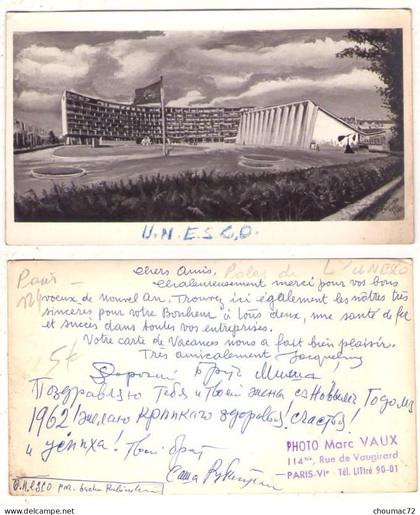 U.N.E.S.C.O.
Paris
Palais de L'UNESCO
Chers Amis,
Chaleureusement merci pour vos bons
voeux de nouvel An. Trouvez ici également les nôtres très
sincères pour votre Bonheur à tous deux, une santé de fer
et succès dans toutes vos entreprises.
Votre carte de Vacances nous a fait bien plaisir.
Très amicalement Jacqueline
5€
Дорогой брат Миша
Поздравляю тебя и твоей жена с Новым Годом
1962! Желаю крепкаго здоровья! Счастья!
и успиха! Твой брат
Саша
PHOTO Marc VAUX
114bis, Rue de Vaugirard
PARIS-VIe - Tél. LITtré 90-01
UNESCO par. Sacha Rubinstein
chouchou_mac72